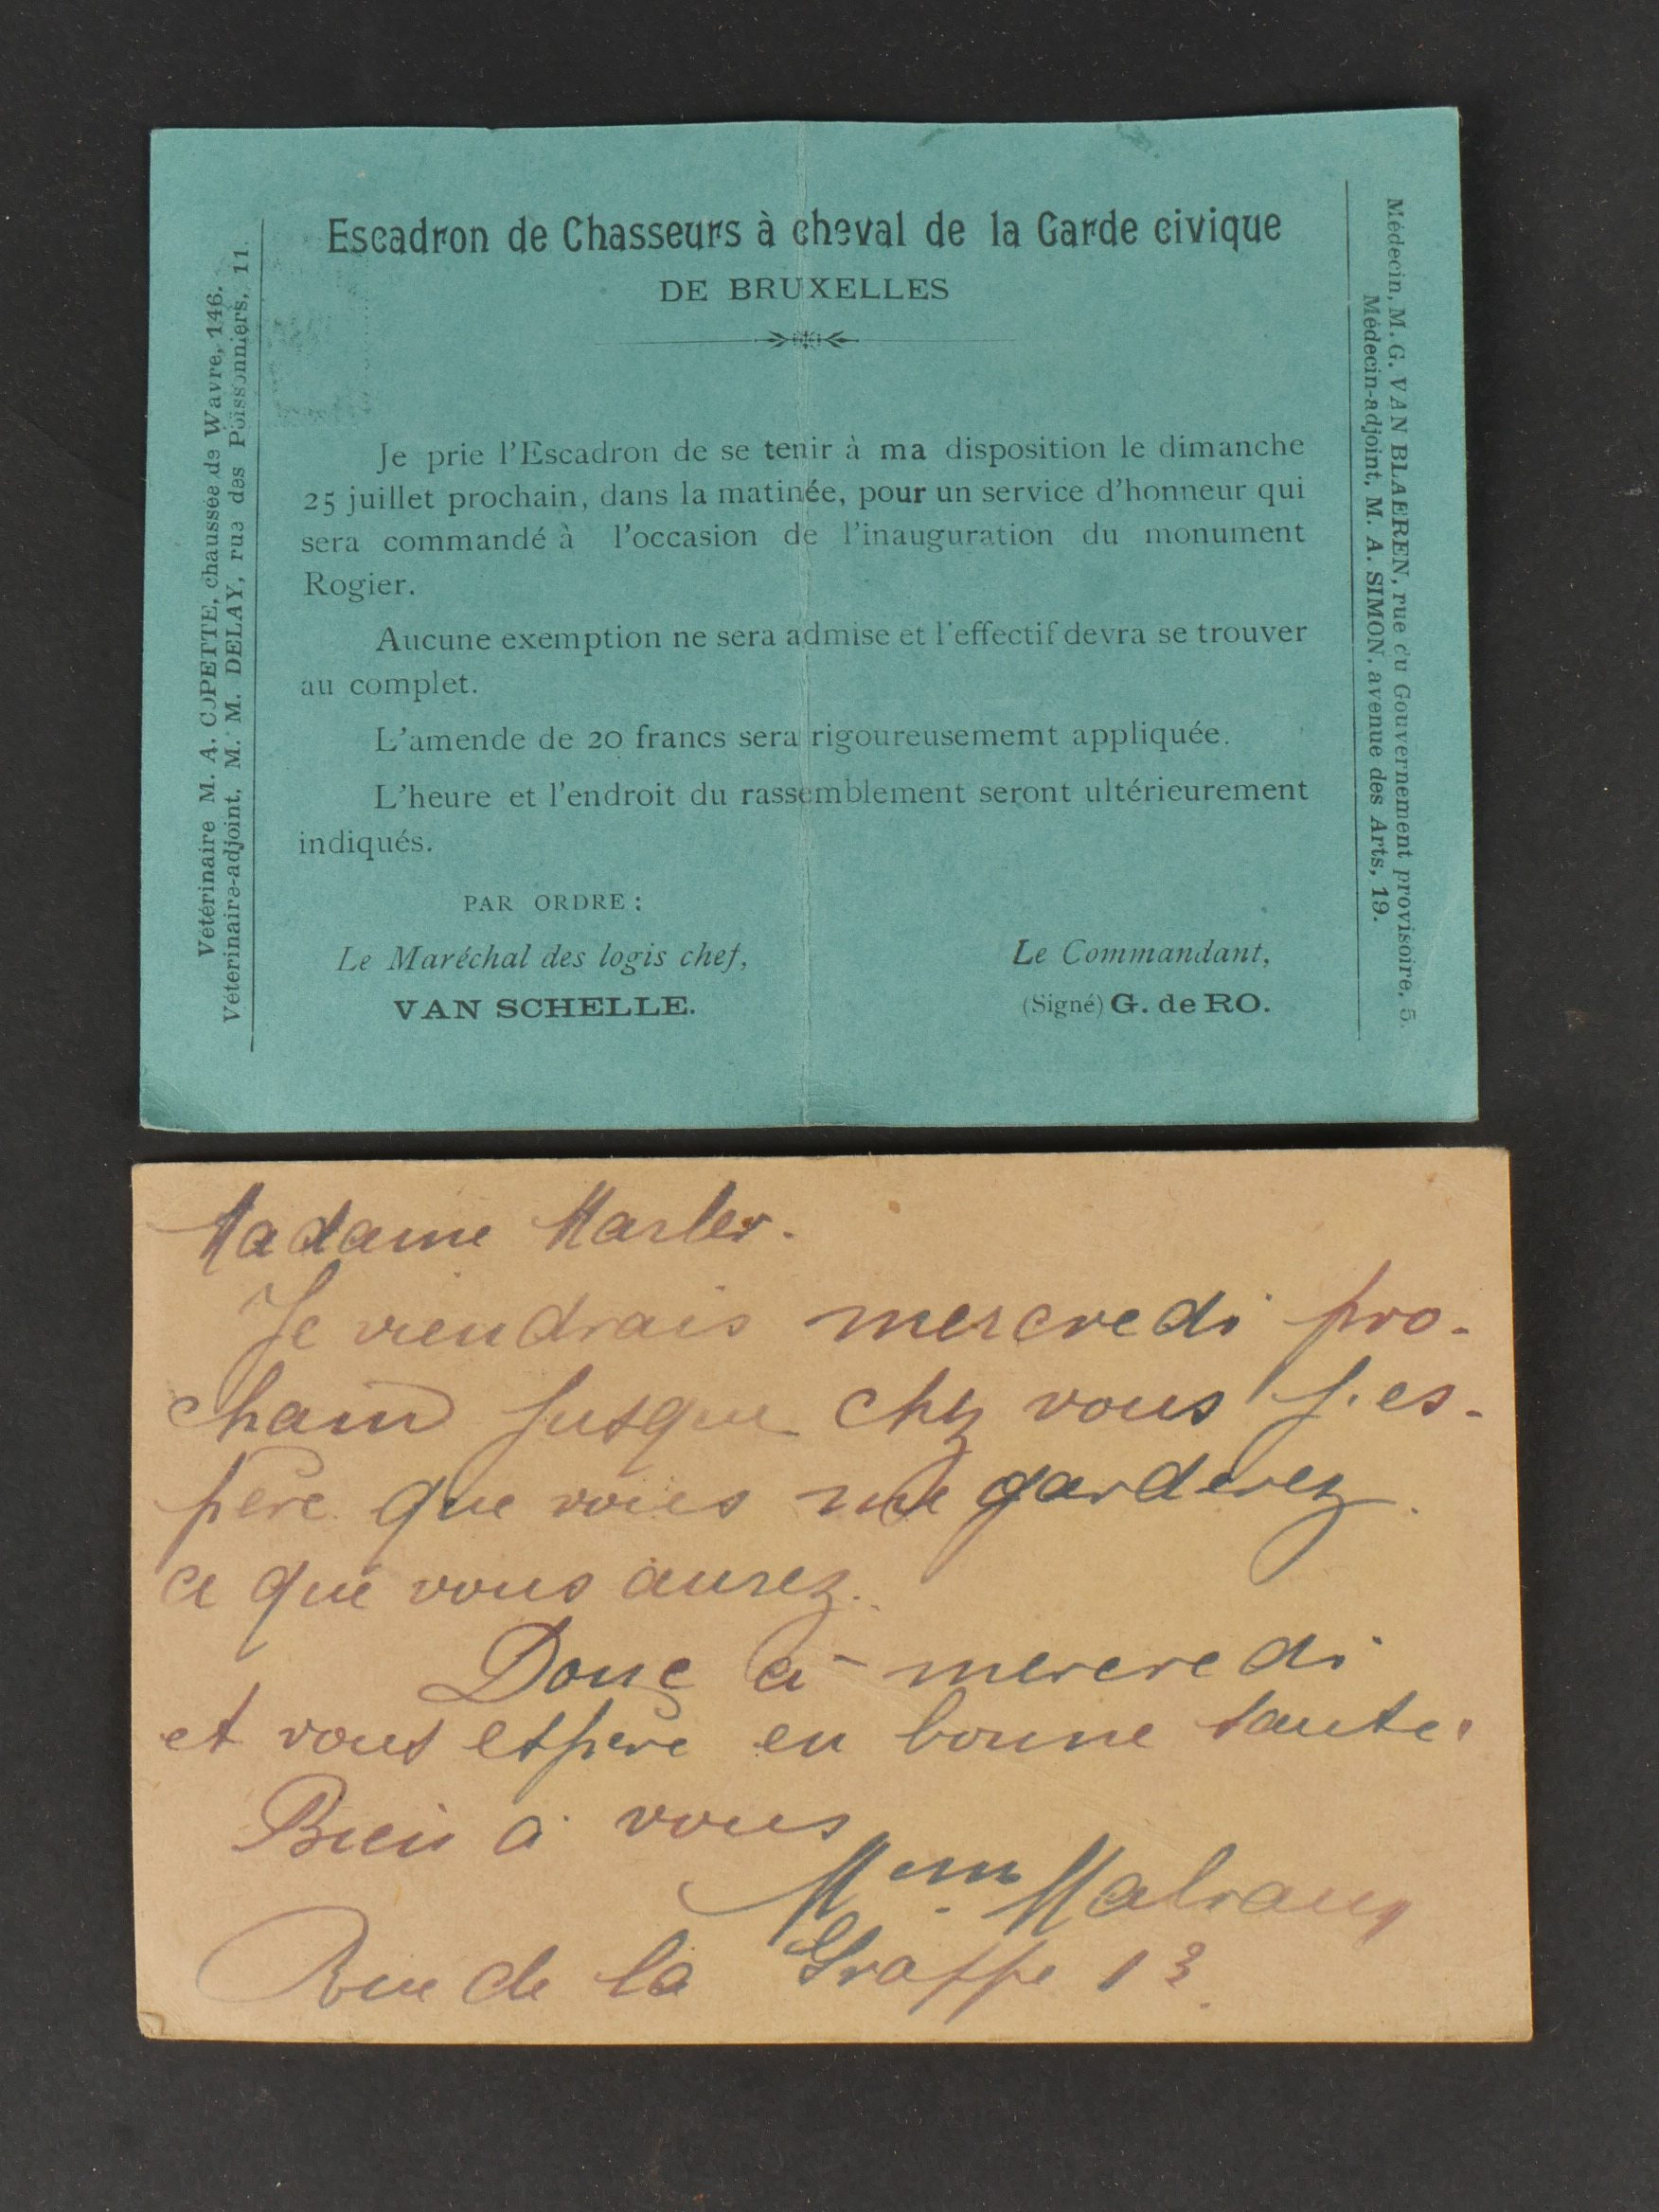 Escadron de Chasseurs à cheval de la Garde civique
DE BRUXELLES
Je prie l'Escadron de se tenir à ma disposition le dimanche
25 juillet prochain, dans la matinée, pour un service d'honneur qui
sera commandé à l'occasion de l'inauguration du monument
Rogier.
Aucune exemption ne sera admise et l'effectif devra se trouver
au complet.
L'amende de 20 francs sera rigoureusememt appliquée.
L'heure et l'endroit du rassemblement seront ultérieurement
indiqués.
PAR ORDRE :
Le Maréchal des logis chef,
VAN SCHELLE.
Le Commandant,
(Signé) G. de RO.
Vétérinaire M. A. COPETTE, chaussée de Wavre, 146.
Vétérinaire-adjoint, M. M. DELAY, rue des Poissonniers, 11.
Médecin, M. G. VAN BLAEREN, rue du Gouvernement provisoire, 5.
Médecin-adjoint, M. A. SIMON, avenue des Arts, 19.
Madame Marler.
Je viendrais mercredi pro-
chain jusque chez vous j'es-
père que vous me garderez
ce que vous aurez.
Donc à mercredi
et vous espère en bonne santé.
Bien à vous
Mme
Rue de la Grappe 13.